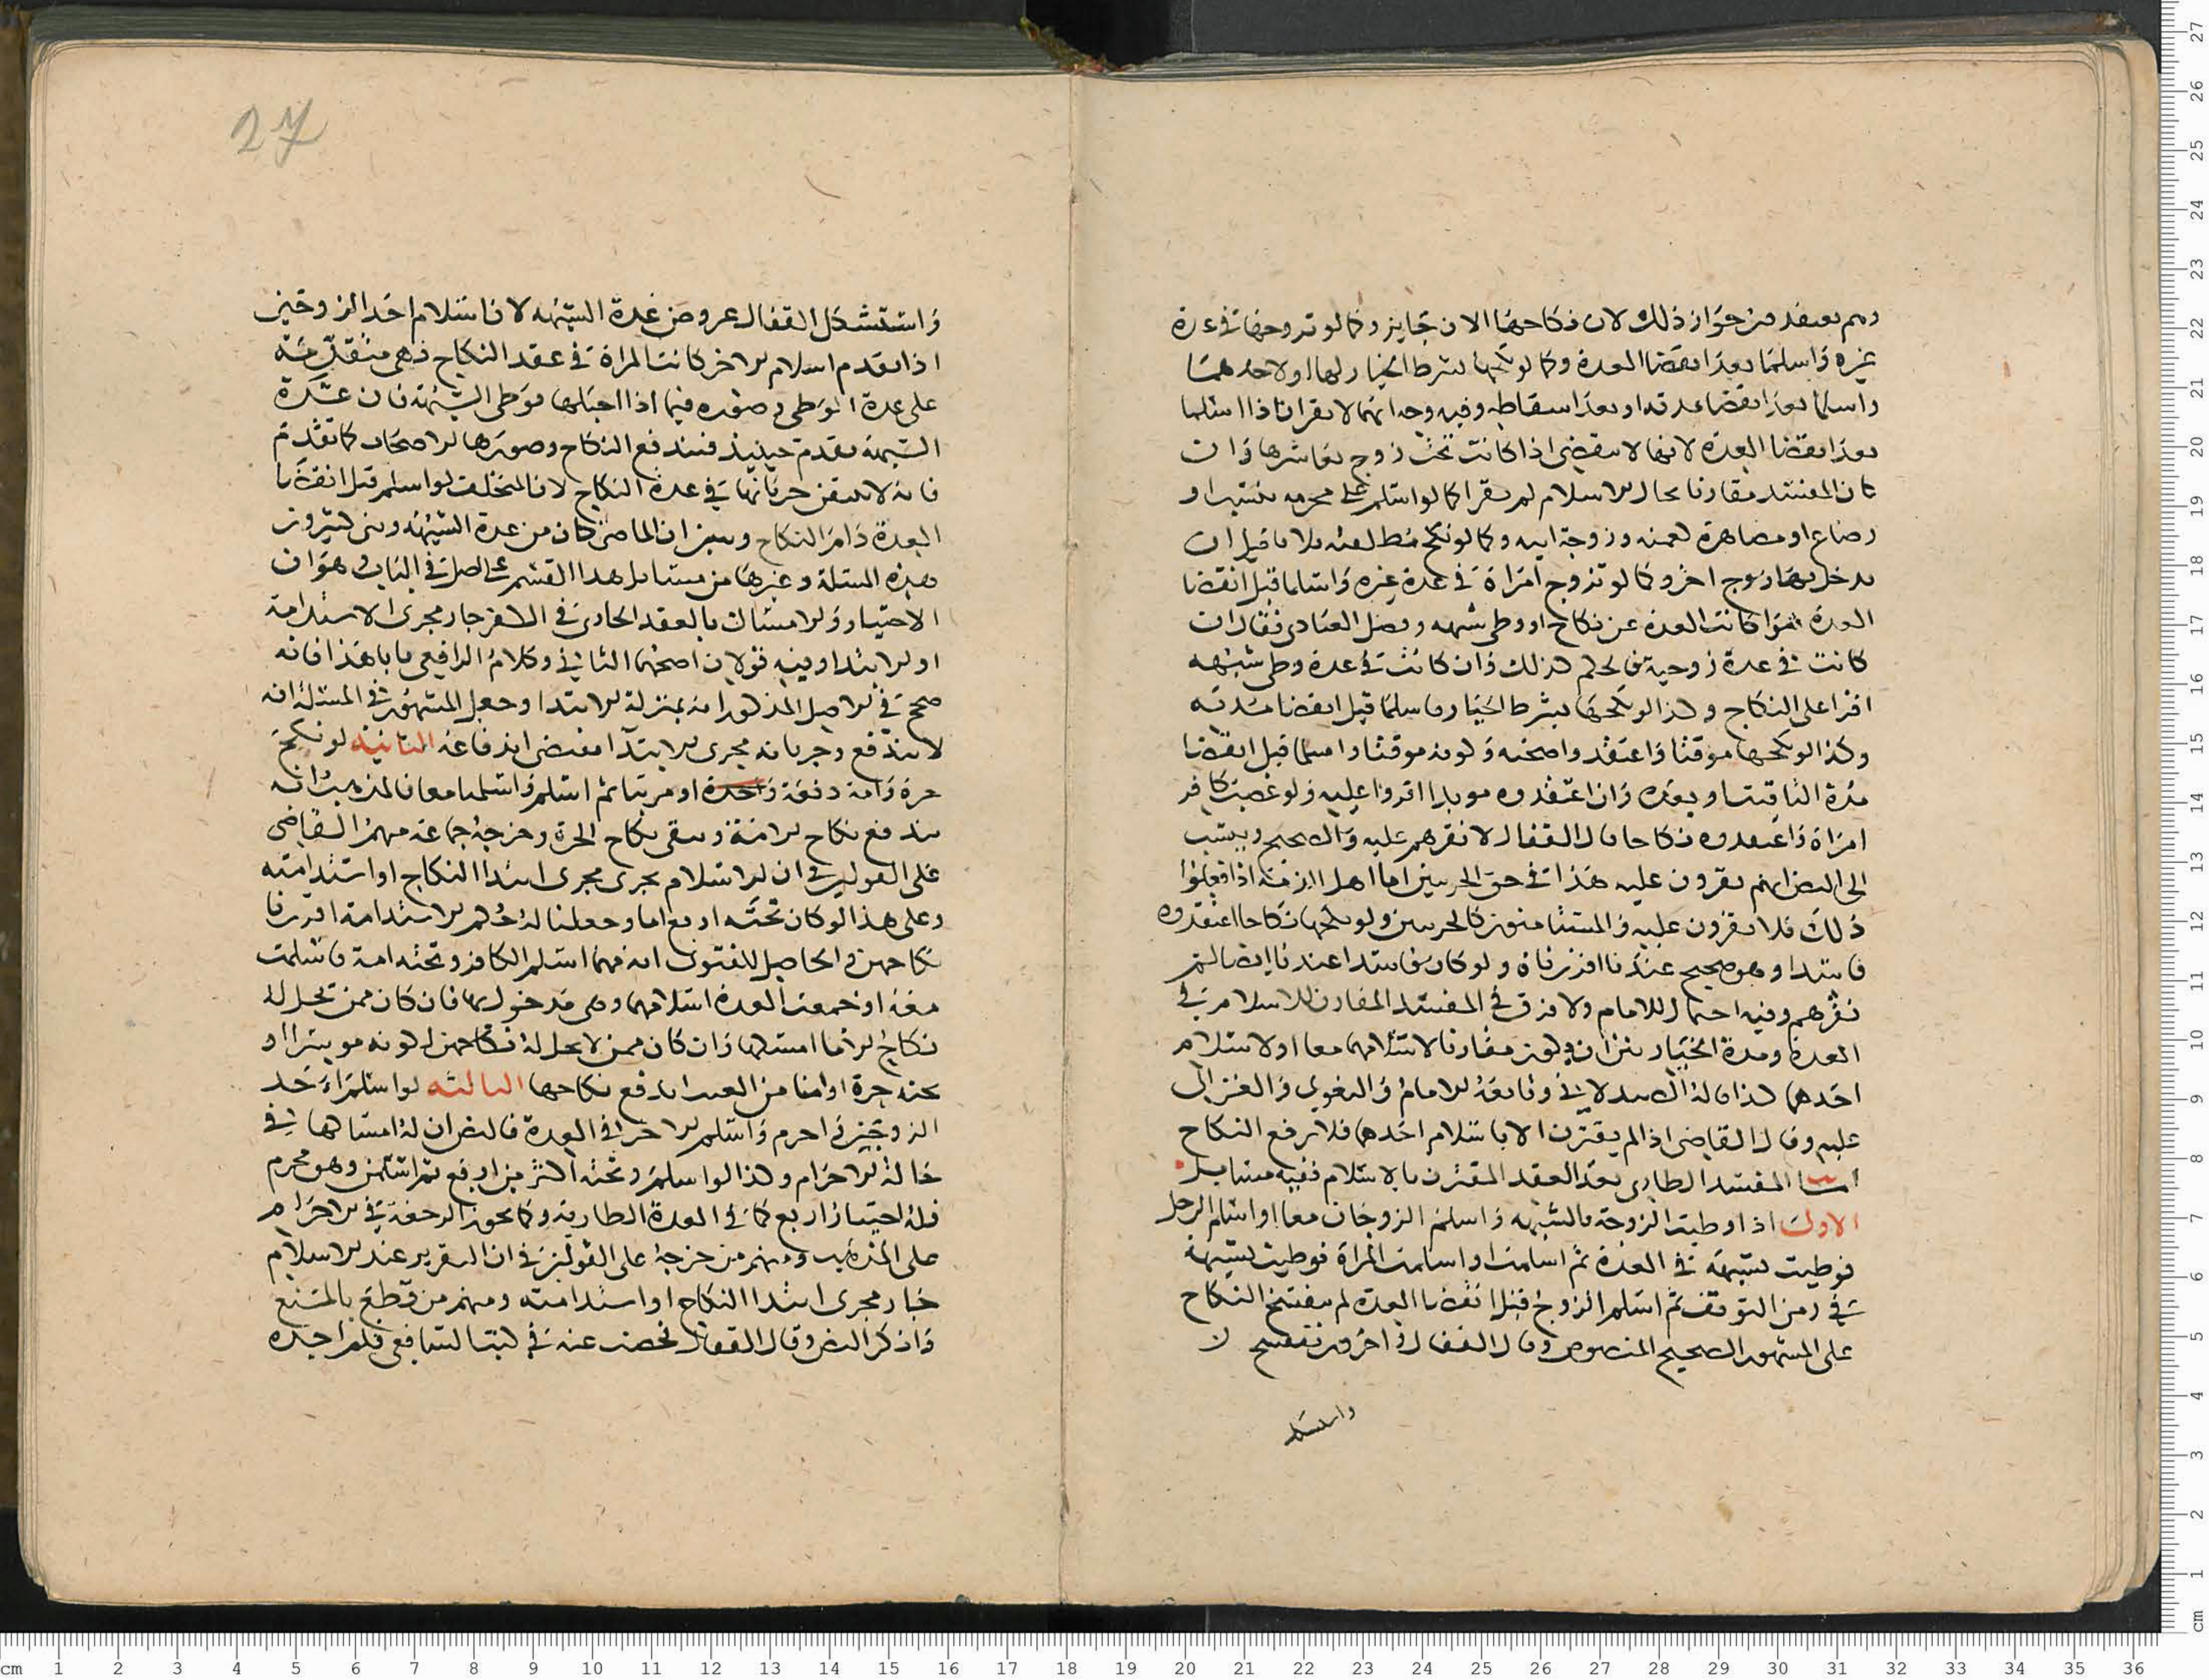 وهم يعتقدون جواز ذلك لان نكاحها الان جايز وكما لو تزوجها في عدة
غيره واسلما بعد انقضا العدة وكما لو نكحها بشرط الخيار لهما او لاحدهما
واسلما بعد انقضا مدته او بعد اسقاطه وفيه وجه انهما لا يقران اذا اسلما
بعد انقضا العدة لانها لا تنقضي اذا كانت تحت زوج يعاشرها وان
كان المفسد مقارنا بحال الاسلام لم يقرا كما لو اسلم على محرمه بنسب او
رضاع او مصاهرة كعمته وزوجة ابيه وكما لو نكح مطلقته ثلاثا قبل ان
يدخل بها زوج اخر وكما لو تزوج امراة في عدة غيره واسلما قبل انقضا
العدة سوا كانت العدة عن نكاح او وطى شبهه وفصل العبادي فقال ان
كانت في عدة زوجية فالحكم كذلك وان كانت في عدة وطى شبهه
اقرا على النكاح وكذا لو نكحها بشرط الخيار واسلما قبل انقضا مدته
وكذا لو نكحها موقتا واعتقد واصحته وكونه موقتا واسلما قبل انقضا
مدة التاقيت او بعده وان اعتقدوه موبدا اقروا عليه ولو غصب كافر
امراة واعتقدوه نكاحا قال القفال لا نقرهم عليه والصحيح وينسب
الى النص انهم يقرون عليه هذا في حق الحربيين اما اهل الذمة اذا فعلوا
ذلك فلا يقرون عليه والمستامنون كالحربيين ولو نكحها نكاحا اعتقدوه
فاسدا وهو صحيح عندنا اقررناه ولو كان فاسدا عندنا ايضا لم
نقرهم وفيه احتمال للامام ولا فرق في المفسد المقارن للاسلام في
العدة ومدة الخيار بين ان يكون مقارنا لاسلامهما معا او لاسلام
احدهما كذا قاله الصيدلاني وتابعه الامام والبغوي والغزالي
عليه وقال القاضي اذا لم يقترن الا باسلام احدهما فلا يرفع النكاح
اما المفسد الطاري بعد العقد المقترن بالاسلام ففيه مسايل
الاولى اذا وطيت الزوجة بالشبهه واسلم الزوجان معا او اسلم الرجل
فوطيت بشبهه في العدة ثم اسلمت او اسلمت المراة فوطيت بشبهة
في زمن التوقف ثم اسلم الزوج قبل انقضا العدة لم ينفسخ النكاح
على المشهور الصحيح المنصوص وقال القفال في اخرون ينفسخ
واستشكل
27
واستشكل القفال عروض عدة الشبهه لان اسلام احد الزوجين
اذا تقدم اسلام الاخر كانت المراة في عقد النكاح فهي متقدمة
على عدة الوطى وصوره فيما اذا احبلها بوطى الشبهة فان عدة
الشبهة تقدم حينيذ فيندفع النكاح وصورها الاصحاب كما تقدم
فانه لا يتيقن جريانها في عدة النكاح لان المتخلف لو اسلم قبل انقضا
العدة دام النكاح وتبين ان الماضي كان من عدة الشبهه وبنى كثيرون
هذه المسلة وغيرها من مسايل هذا القسم على اصل في الباب وهو ان
الاختيار والامساك بالعقد الجاري في الكفر جار مجرى الاستدامة
او الابتدا وفيه قولان اصحهما الثاني وكلام الرافعي يابا هذا فانه
صحح في الاصل المذكور انه بمنزلة الابتدا وجعل المشهور في المسئلة انه
لا يندفع وجريانه مجرى الابتدا مقتضى اندفاعه الثانية لو نكح
حرة وامة دفعة واحدة او مرتبا ثم اسلم واسلمتا معا فالمذهب انه
يندفع نكاح الامة ويبقى نكاح الحرة وخرجه جماعة منهم القاضي
على القولين في ان الاسلام يجرى مجرى ابتدا النكاح او استدامته
وعلى هذا لو كان تحته اربع اما وجعلنا له حكم الاستدامة اقررنا
نكاحهن والحاصل للفتوى انه مهما اسلم الكافر وتحته امة فاسلمت
معه او جمعت العدة اسلامهما وهي مدخول بها فان كان ممن تحل له
نكاح الاما امسكها وان كان ممن لا يحل له نكاحهن لكونه موسرا او
تحته حرة او امنا من العنت اندفع نكاحها الثالثه لو اسلم احد
الزوجين واحرم واسلم الاخر في العدة فالنص ان له امساكها في
حالة الاحرام وكذا لو اسلم وتحته اكثر من اربع ثم اسلمن وهو محرم
فله اختيار اربع كما في العدة الطارية وكما تجوز الرجعة في الاحرام
على المذهب ومنهم من خرجه على القولين في ان التقرير عند الاسلام
جار مجرى ابتدا النكاح او استدامته ومنهم من قطع بالمنع
وانكر النص وقال القفال فحصت عنه في كتب الشافعي فلم اجده